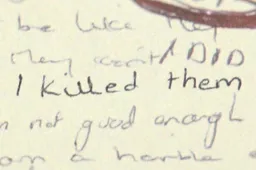 be like they
They I DID
I killed them
not good enough
am a horrible